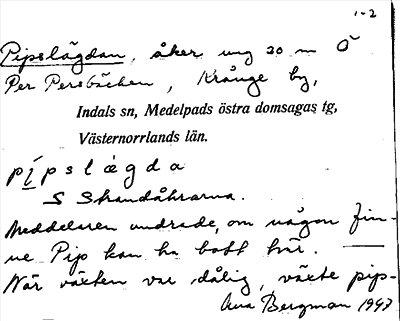 1-2
Pipslägdan, åker ung 20 m Ö
Per Persbäcken, Krånge by,
Indals sn, Medelpads östra domsagas tg,
Västernorrlands län.
pípslǽgda
S Strandåkrarna.
Meddelaren undrade, om någon Fin-
ne Pip kan ha bott här. —
När växten var dålig, växte pip-
Bergman 1947